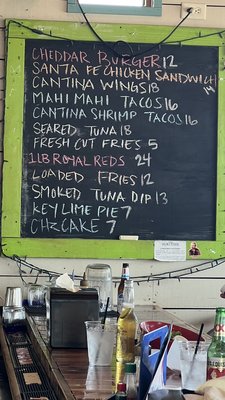 CHEDDAR BURGER 12
SANTA FE CHICKEN SANDWICH 14
CANTINA WINGS 18
MAHI MAHI TACOS 16
CANTINA SHRIMP TACOS 16
SEARED TUNA 18
FRESH CUT FRIES 5
1LB ROYAL REDS 24
LOADED FRIES 12
SMOKED TUNA DIP 13
KEY LIME PIE 7
CHZCAKE 7